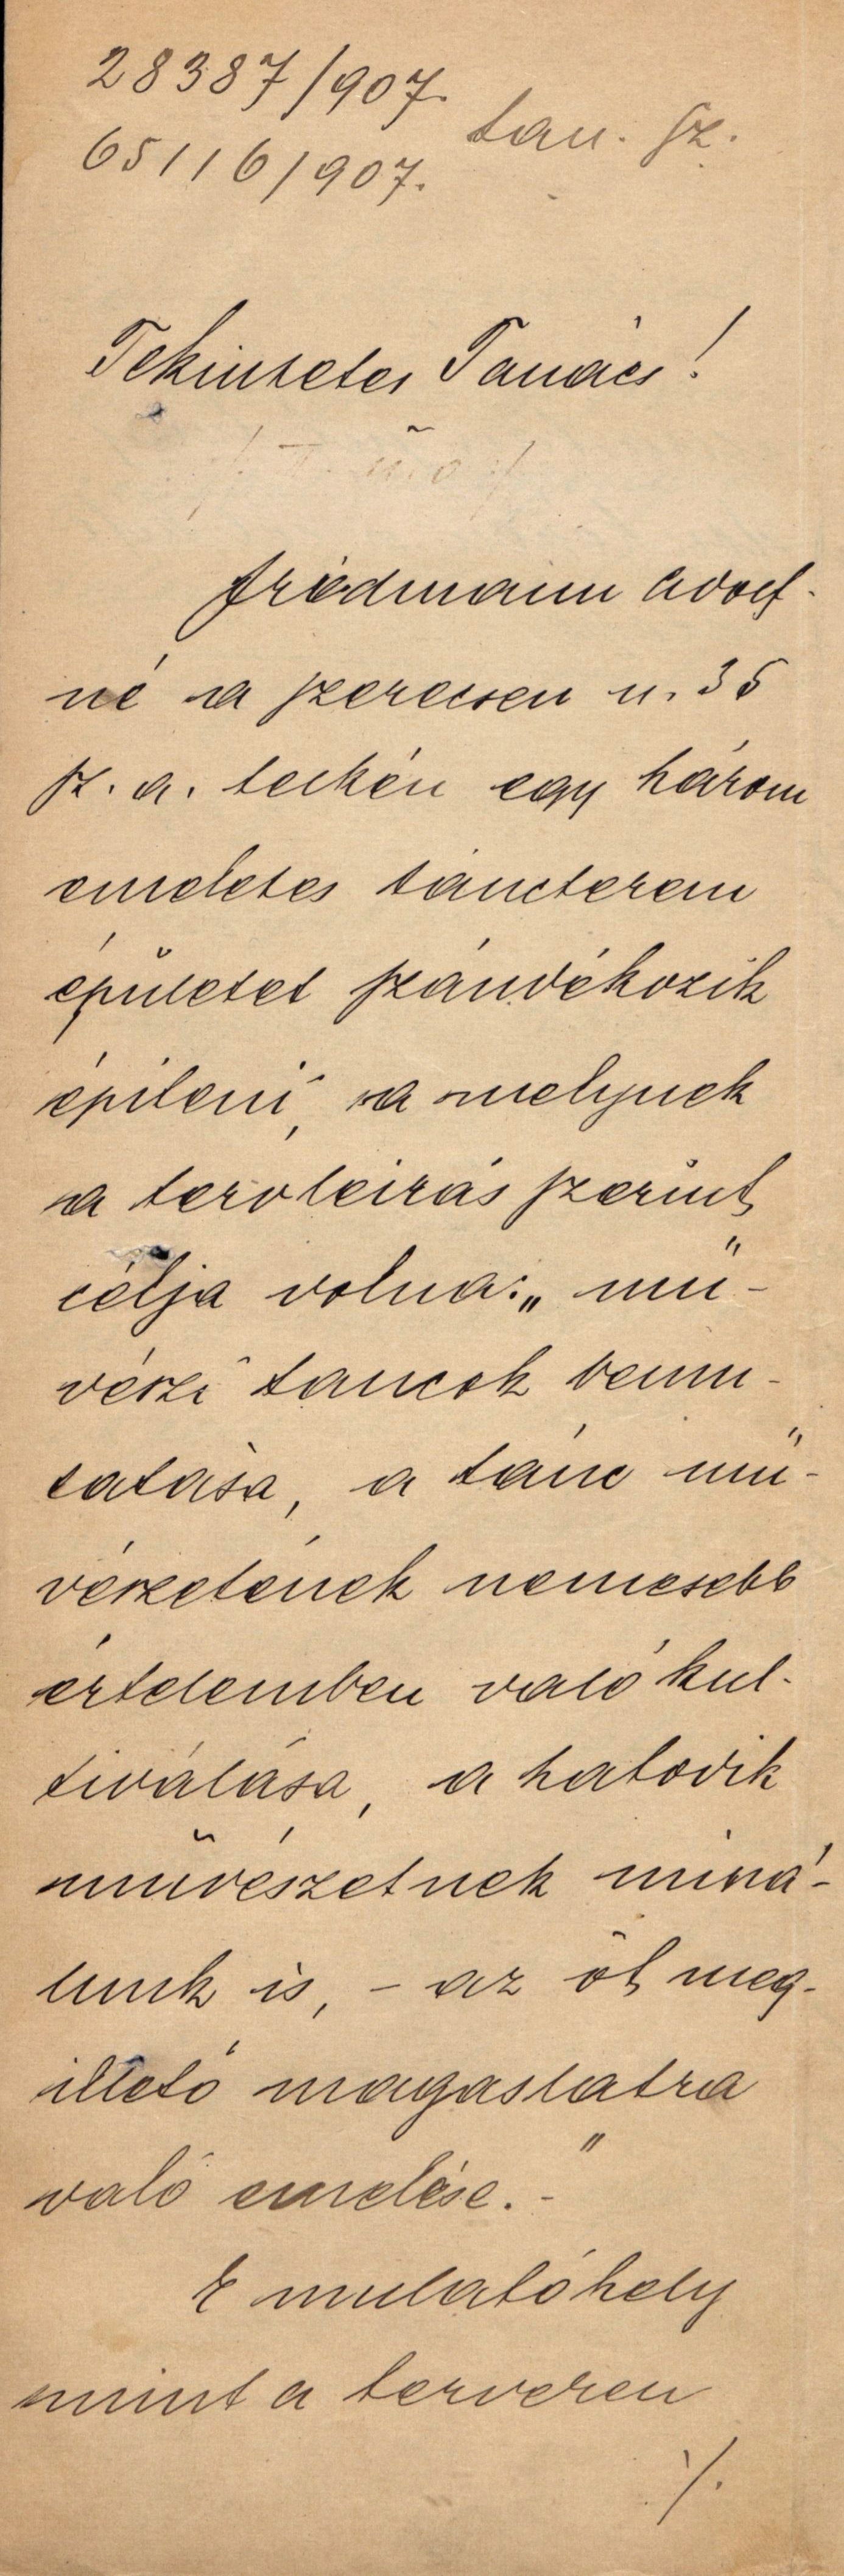 28387/907.
tan. sz.
65116/907.
Tekintetes Tanács!
Friedmann Adolf-
né a szerecsen u. 35
sz. a. telkén egy három
emeletes táncterem
épületet szándékozik
építeni, a melynek
a tervleirás szerint
célja volna: „mű-
vészi táncok bemu-
tatása, a tánc mű-
vészetének nemesebb
értelemben való kul-
tiválása, a hatodik
művészetnek miná-
lunk is, - az őt meg-
illető magaslatra
való emelése.-"
E mulatóhely
mint a terveren
./.